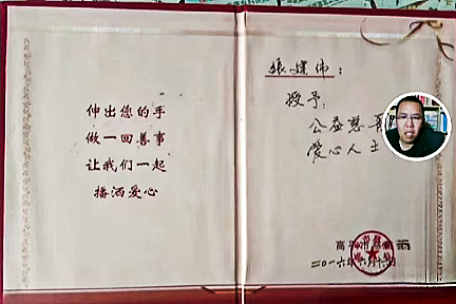 伸出您的手
做一回善事
让我们一起
播洒爱心
张建伟:
授予
公益慈
爱心人士
高平市
二〇一六年六月十